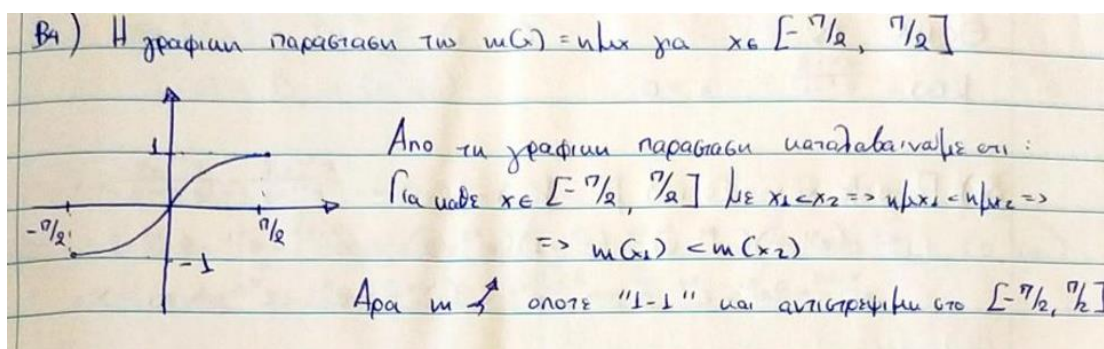 Β4) Η γραφικη παρασταση τις m(x) = ημx για x ∈ [-π/2, π/2]
1
-π/2
π/2
-1
Απο τη γραφικη παρασταση καταλαβαιναμε οτι :
Για καθε x ∈ [-π/2, π/2] με x1 < x2 => ημx1 < ημx2 =>
=> m(x1) < m(x2)
Αρα m ↗ οποτε "1-1" και αντιστρεψιμη στο [-π/2, π/2]